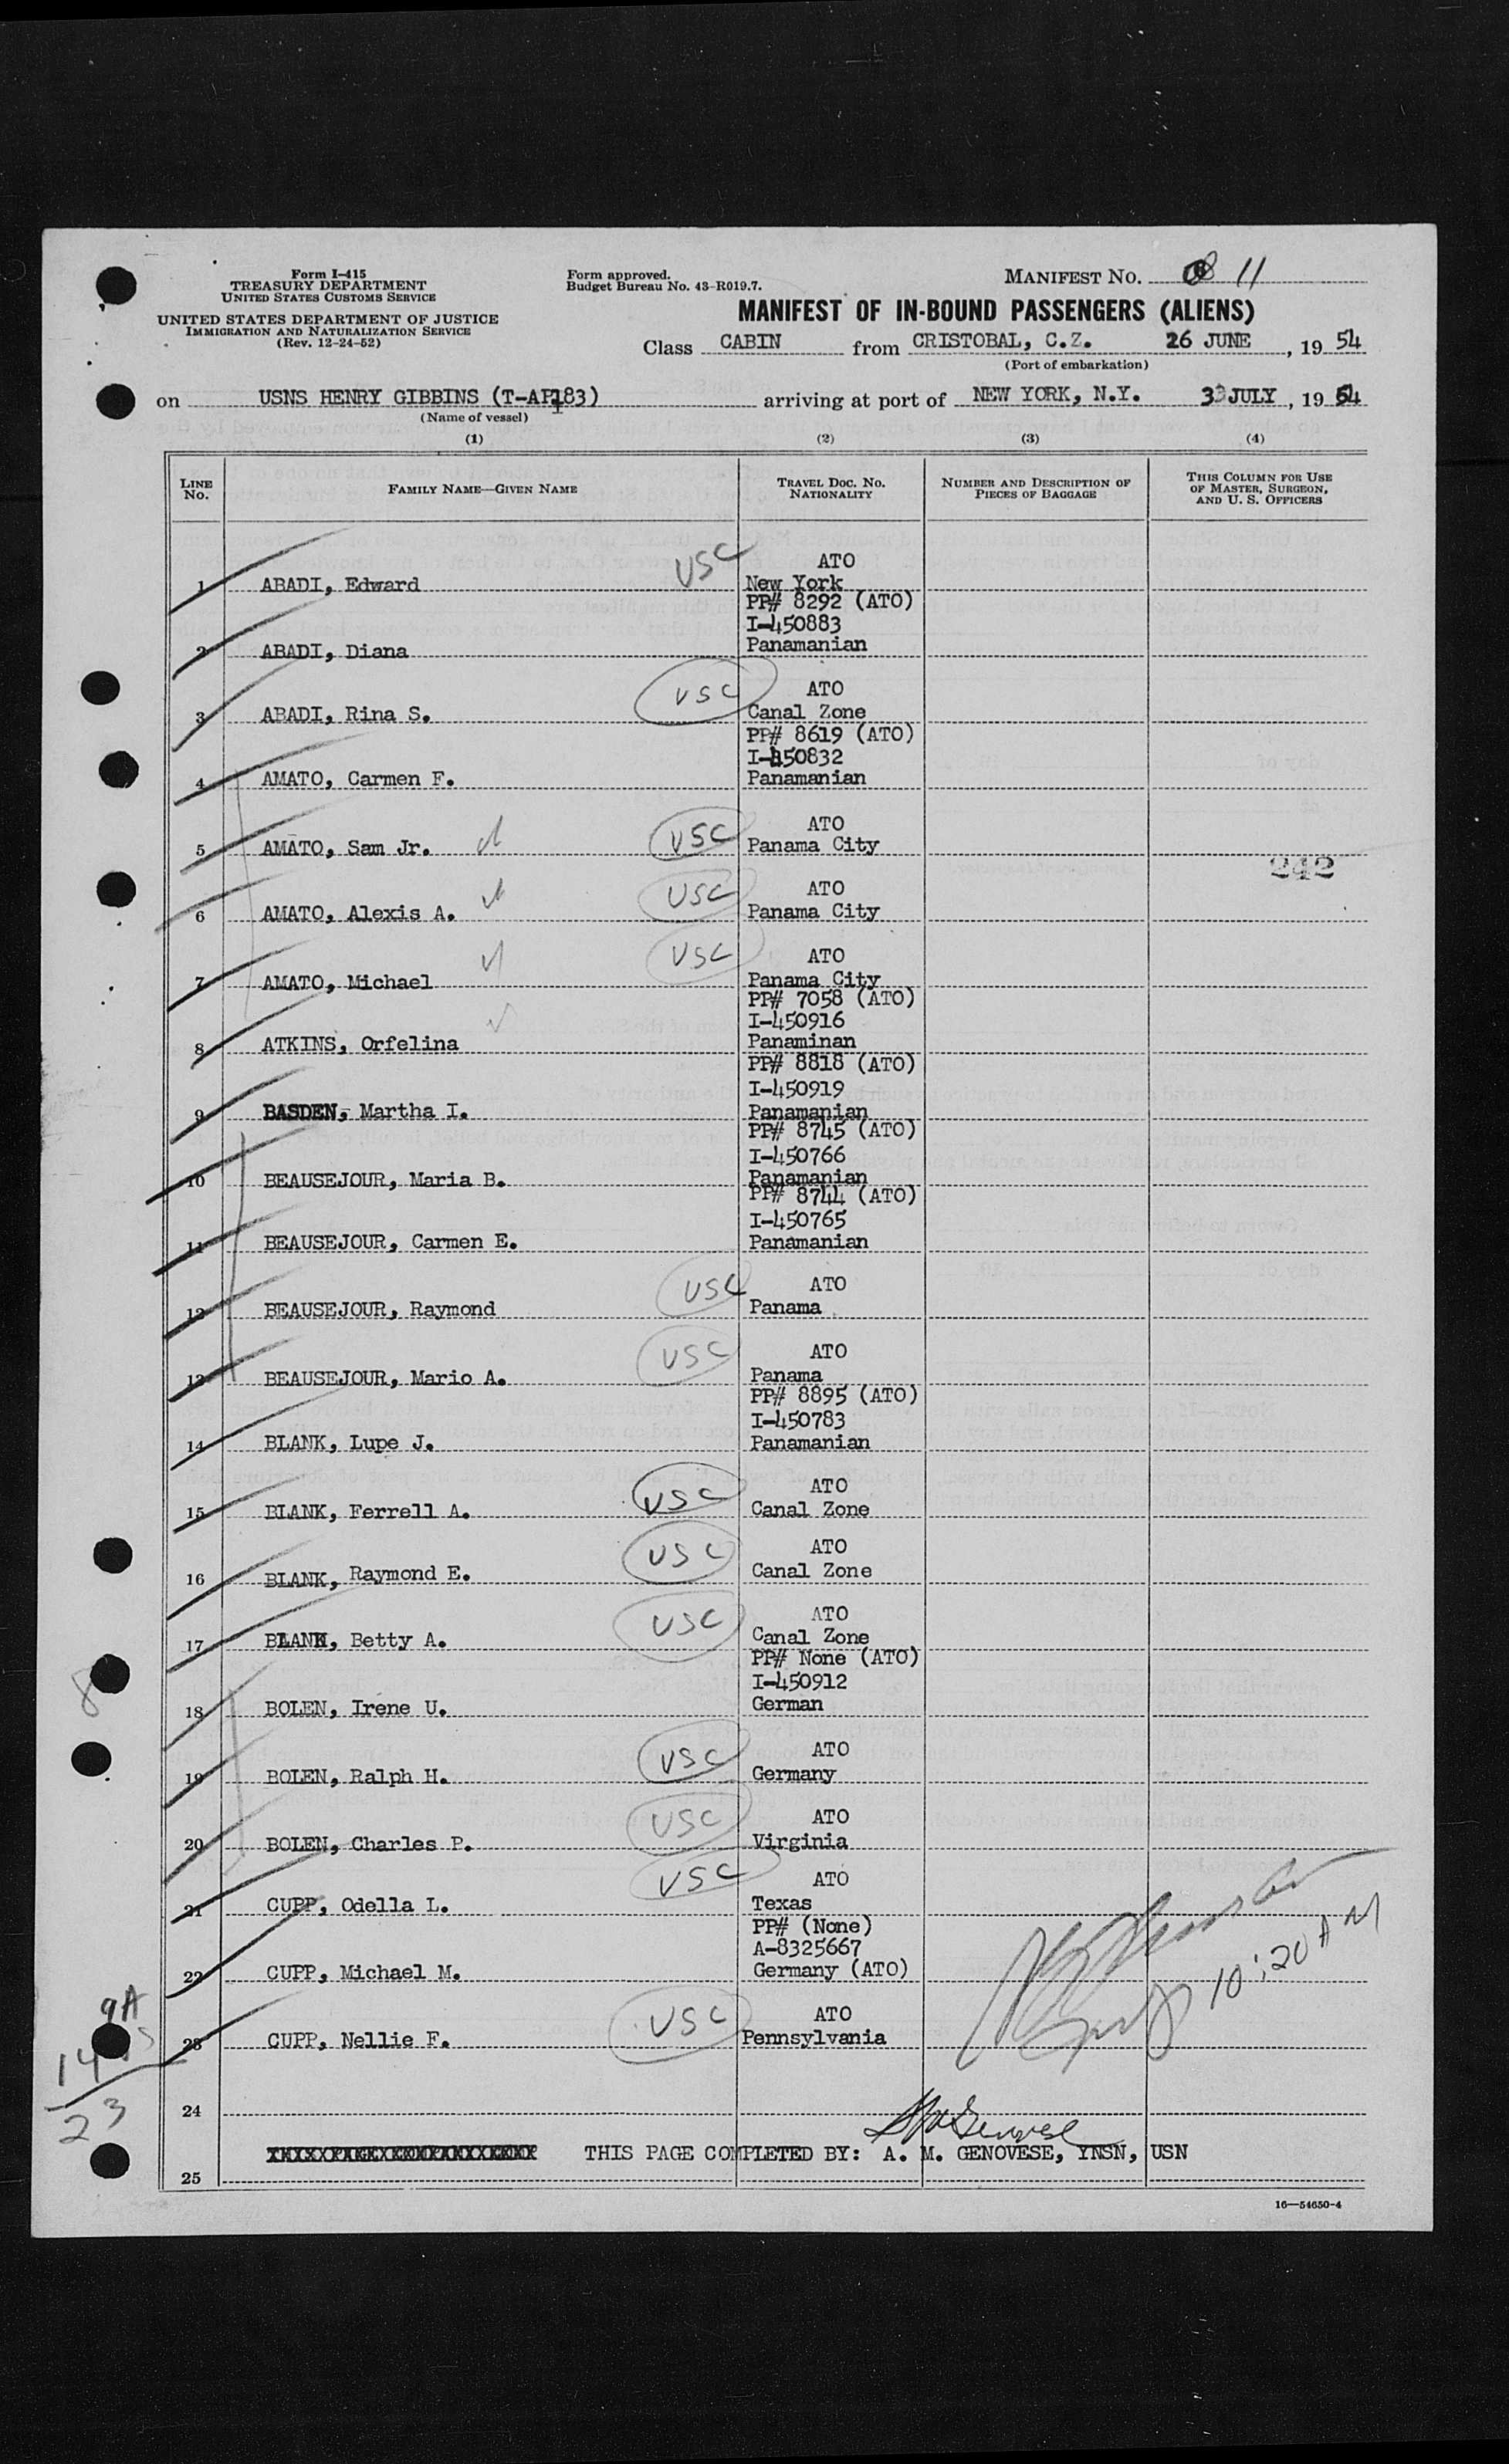 Form I-415
TREASURY DEPARTMENT
UNITED STATES CUSTOMS SERVICE
UNITED STATES DEPARTMENT OF JUSTICE
IMMIGRATION AND NATURALIZATION SERVICE
(Rev. 12-24-52)
Form approved.
Budget Bureau No. 43-R019.7.
MANIFEST NO. 11
MANIFEST OF IN-BOUND PASSENGERS (ALIENS)
Class CABIN from CRISTOBAL, C.Z. 26 JUNE, 19 54
(Port of embarkation)
on USNS HENRY GIBBINS (T-AP183) arriving at port of NEW YORK, N.Y. 3 JULY, 19 54
(Name of vessel)
(1) (2) (3) (4)
LINE NO. FAMILY NAME—GIVEN NAME TRAVEL DOC. NO. NATIONALITY NUMBER AND DESCRIPTION OF PIECES OF BAGGAGE THIS COLUMN FOR USE OF MASTER, SURGEON, AND U. S. OFFICERS
USC ATO
1 ABADI, Edward New York
PP# 8292 (ATO)
I-450883
2 ABADI, Diana Panamanian
USC ATO
3 ABADI, Rina S. Canal Zone
PP# 8619 (ATO)
I-450832
4 AMATO, Carmen F. Panamanian
USC ATO
5 AMATO, Sam Jr. Panama City
242
USC ATO
6 AMATO, Alexis A. Panama City
USC ATO
7 AMATO, Michael Panama City
PP# 7058 (ATO)
I-450916
8 ATKINS, Orfelina Panaminan
PP# 8818 (ATO)
I-450919
9 BASDEN, Martha I. Panamanian
PP# 8745 (ATO)
I-450766
10 BEAUSEJOUR, Maria B. Panamanian
PP# 8744 (ATO)
I-450765
11 BEAUSEJOUR, Carmen E. Panamanian
USC ATO
12 BEAUSEJOUR, Raymond Panama
USC ATO
13 BEAUSEJOUR, Mario A. Panama
PP# 8895 (ATO)
I-450783
14 BLANK, Lupe J. Panamanian
USC ATO
15 BLANK, Ferrell A. Canal Zone
USC ATO
16 BLANK, Raymond E. Canal Zone
USC ATO
17 BLANK, Betty A. Canal Zone
PP# None (ATO)
I-450912
18 BOLEN, Irene U. German
8
USC ATO
19 BOLEN, Ralph H. Germany
USC ATO
20 BOLEN, Charles P. Virginia
USC ATO
21 CUPP, Odella L. Texas
PP# (None)
A-8325667
22 CUPP, Michael M. Germany (ATO)
10:20 AM
9A
USC ATO
23 CUPP, Nellie F. Pennsylvania
14
23
24
THIS PAGE COMPLETED BY: A. M. GENOVESE, YNSN, USN
25
16—54650-4